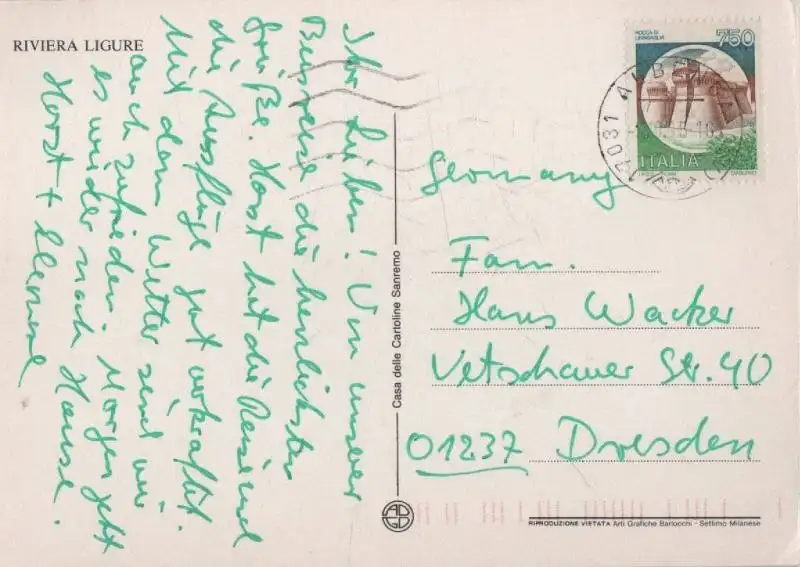 RIVIERA LIGURE
Ihr Lieben! Von unserer
Busreise die herzlichsten
Grüße. Horst hat die Reise und
die Ausflüge gut verkraftet.
Mit dem Wetter sind wir
auch zufrieden. Morgen geht
es wieder nach Hause.
Horst +
Casa delle Cartoline Sanremo
ROCCA DI
URBISAGLIA
750
ITALIA
17031 ALBENGA
Germany
Fam.
Hans Wacker
Vetschauer Str. 40
01237 Dresden
RIPRODUZIONE VIETATA Arti Grafiche Bariocchi - Settimo Milanese